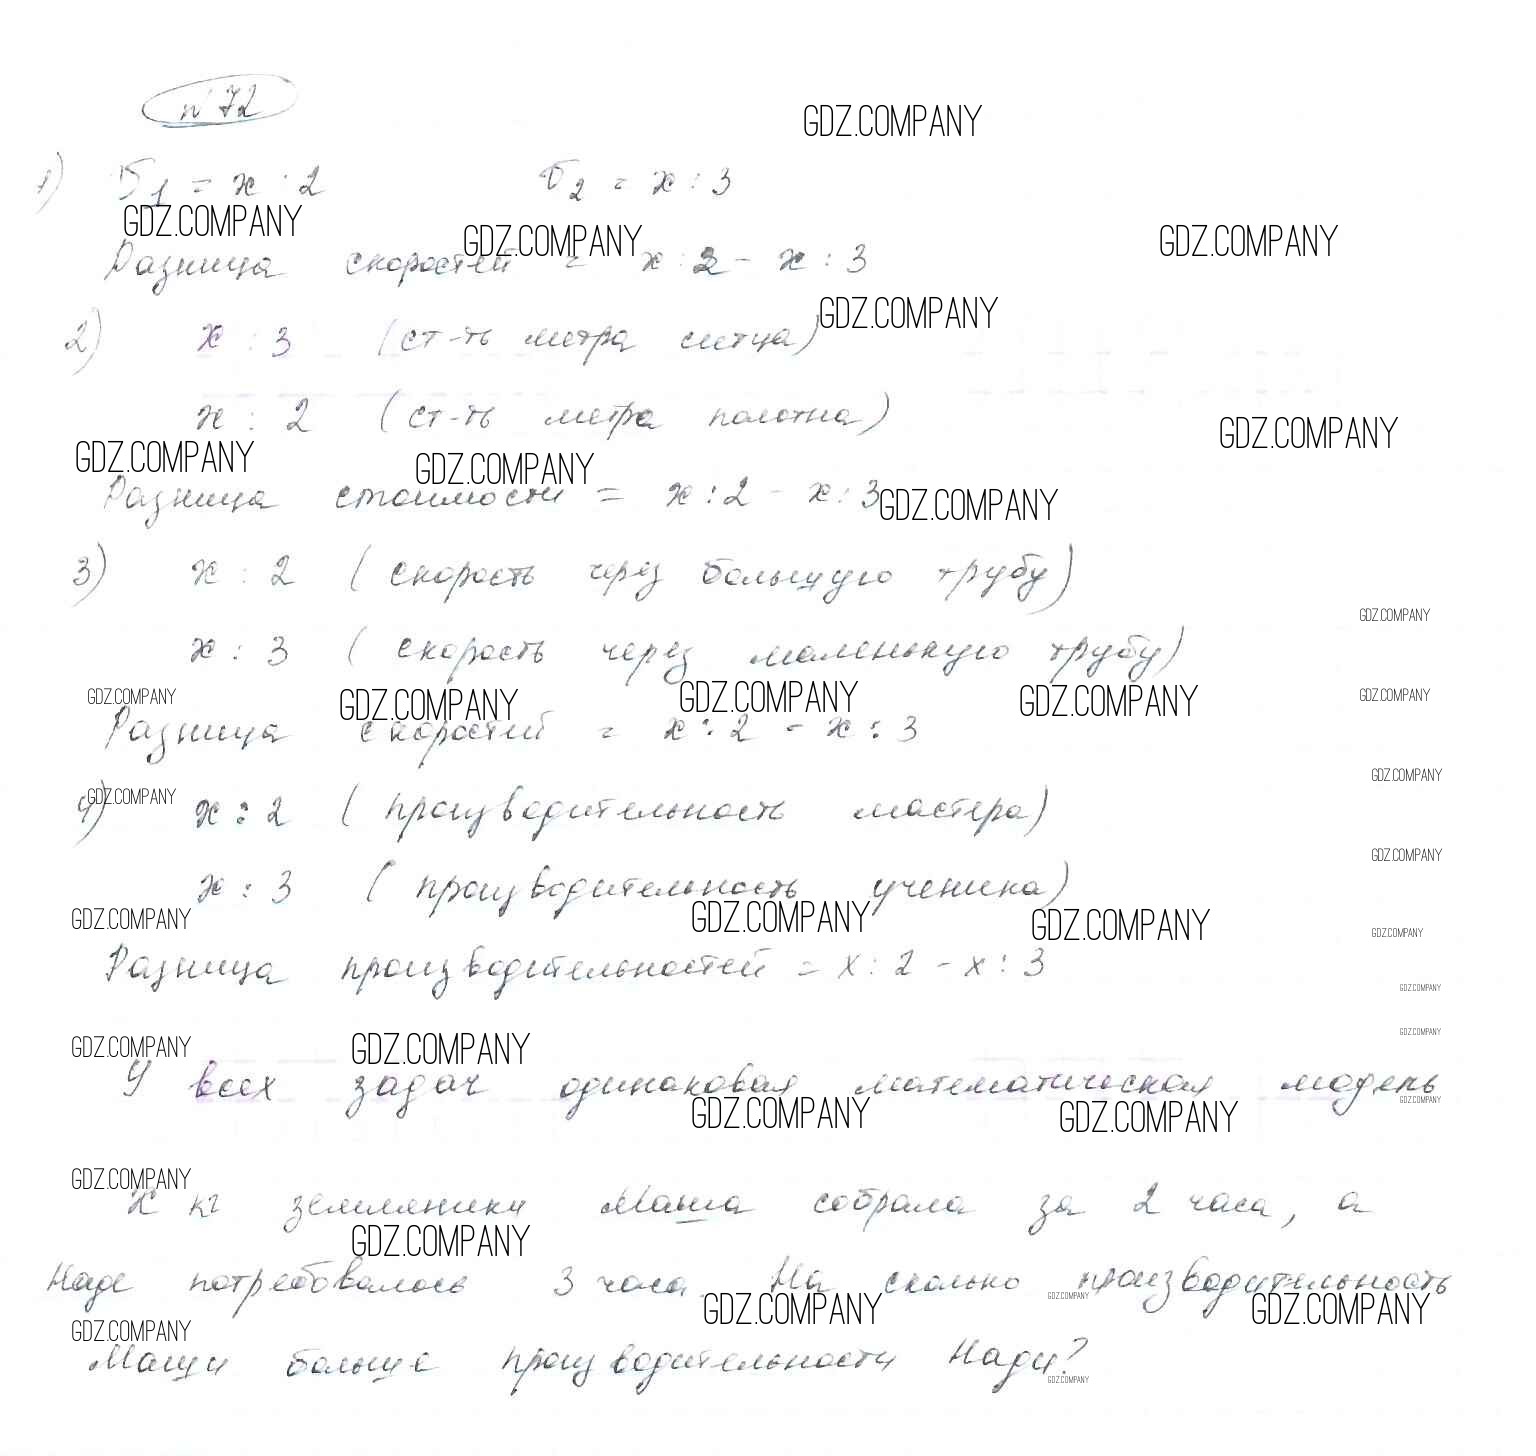 №72
GDZ.COMPANY
1) V1 = x : 2 V2 = x : 3
GDZ.COMPANY GDZ.COMPANY GDZ.COMPANY
Разница скоростей = x : 2 - x : 3
GDZ.COMPANY
2) x : 3 (ст-ть метра ситца)
x : 2 (ст-ть метра полотна)
GDZ.COMPANY GDZ.COMPANY GDZ.COMPANY
Разница стоимости = x : 2 - x : 3
GDZ.COMPANY
3) x : 2 (скорость через большую трубу)
GDZ.COMPANY
x : 3 (скорость через маленькую трубу)
GDZ.COMPANY GDZ.COMPANY GDZ.COMPANY GDZ.COMPANY GDZ.COMPANY
Разница скоростей = x : 2 - x : 3
GDZ.COMPANY GDZ.COMPANY
4) x : 2 (производительность мастера)
GDZ.COMPANY
x : 3 (производительность ученика)
GDZ.COMPANY GDZ.COMPANY GDZ.COMPANY GDZ.COMPANY
Разница производительностей = x : 2 - x : 3
GDZ.COMPANY
GDZ.COMPANY GDZ.COMPANY GDZ.COMPANY
У всех задач одинаковая математическая модель
GDZ.COMPANY GDZ.COMPANY GDZ.COMPANY
GDZ.COMPANY
x кг земляники Маша собрала за 2 часа, а
GDZ.COMPANY
Наде потребовалось 3 часа. На сколько производительность
GDZ.COMPANY GDZ.COMPANY GDZ.COMPANY GDZ.COMPANY
Маши больше производительности Нади?
GDZ.COMPANY